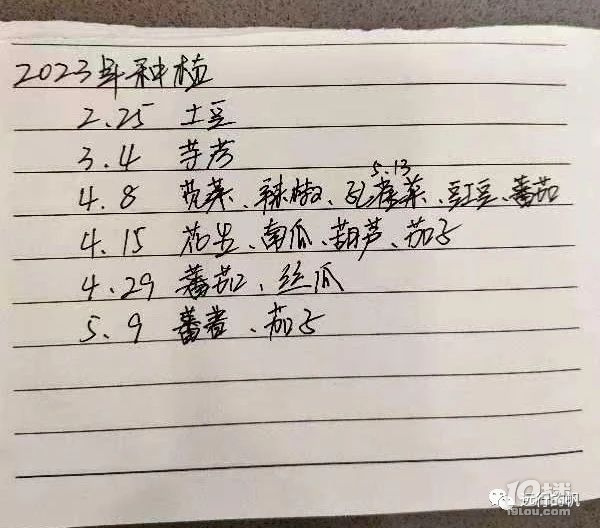 2023年种植
2.25 土豆
3.4 芋艿
5.13
4.8 苋菜、辣椒、空蕹菜、豇豆、蕃茄
4.15 花生、南瓜、葫芦、茄子
4.29 蕃茄、丝瓜
5.9 蕃薯、茄子
19楼
19lou.com